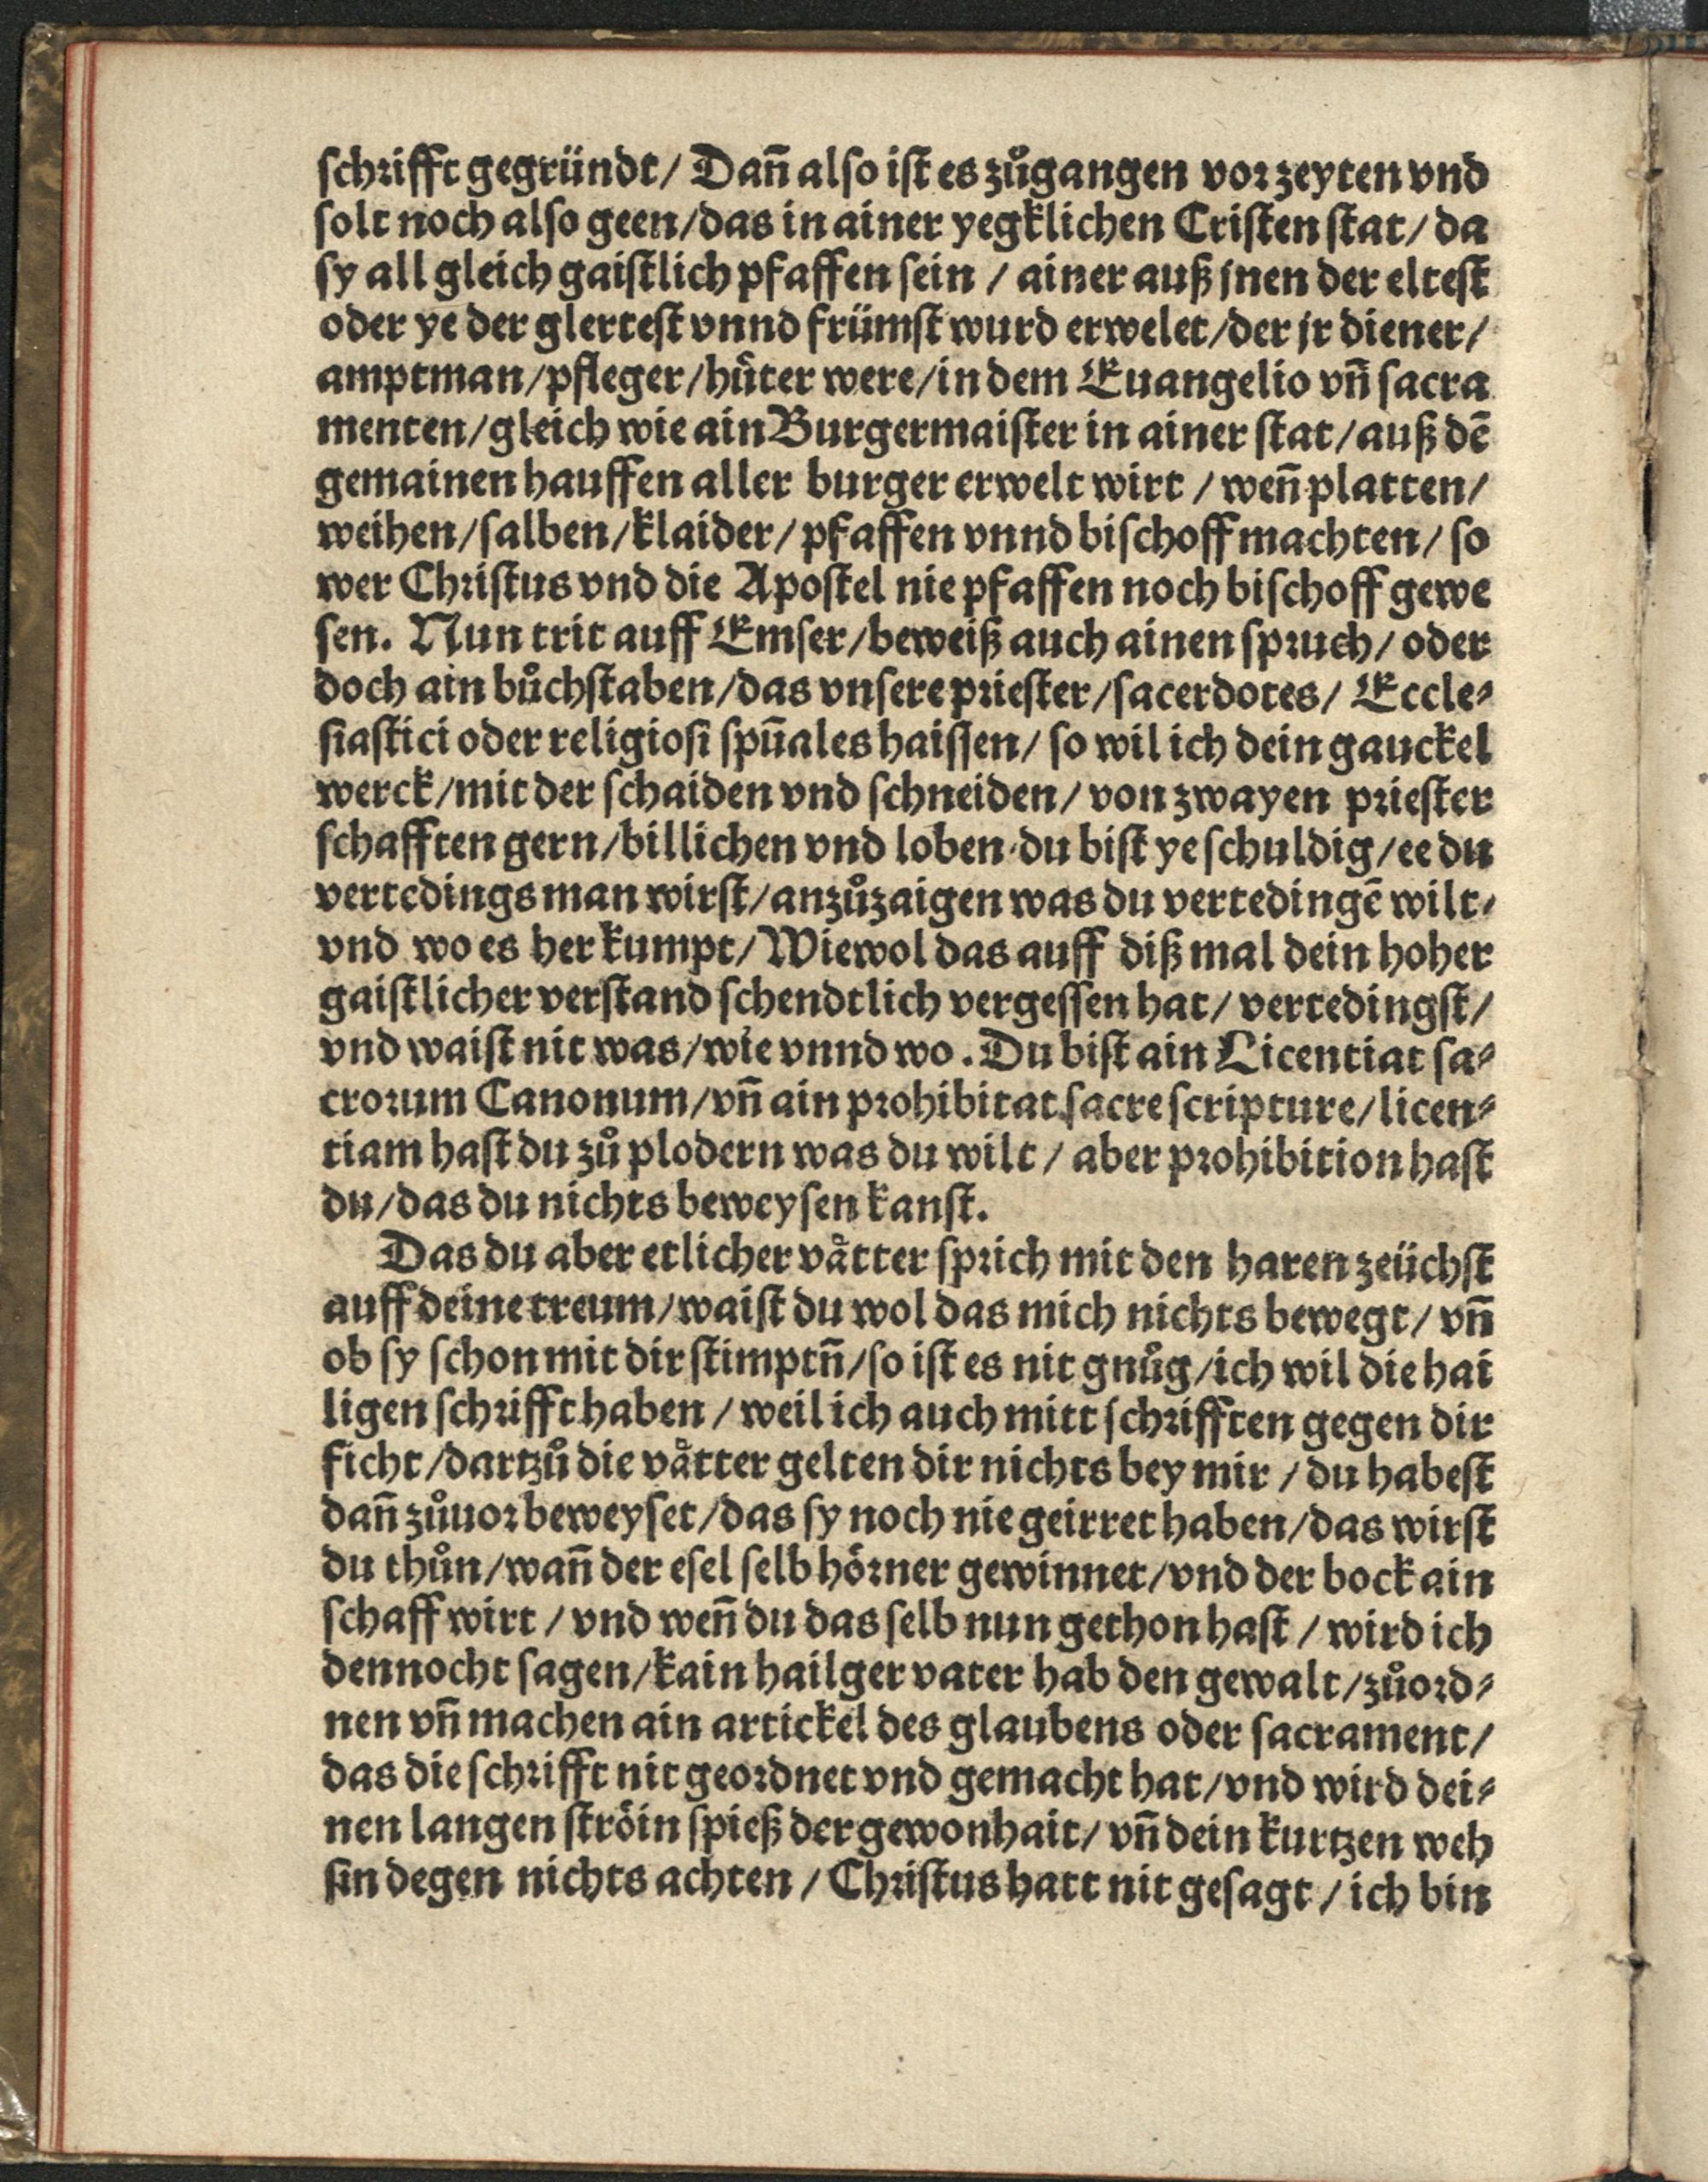 ſchrifft gegründt/ Dañ alſo iſt es zůgangen vor zeyten vnd
ſolt noch alſo geen/das in ainer yegklichen Criſten ſtat/ da
ſy all gleich gaiſtlich pfaffen ſein / ainer auß jnen der elteſt
oder ye der glerteſt vnnd frümſt wurd erwelet/der jr diener/
amptman/pfleger/hůter were/in dem Euangelio vñ ſacra
menten/gleich wie ain Burgermaiſter in ainer ſtat/auß dē
gemainen hauffen aller burger erwelt wirt / weñ platten/
weihen/ſalben/klaider/pfaffen vnnd biſchoff machten/ ſo
wer Chriſtus vnd die Apoſtel nie pfaffen noch biſchoff gewe
ſen. Nun trit auff Emſer/beweiß auch ainen ſpruch/ oder
doch ain bůchſtaben/das vnſere prieſter/ſacerdotes/ Eccle⸗
ſiaſtici oder religioſi ſpūales haiſſen/ ſo wil ich dein gauckel
werck/mit der ſchaiden vnd ſchneiden/ von zwayen prieſter
ſchafften gern/billichen vnd loben/du biſt ye ſchuldig/ee du
vertedings man wirſt/anzůzaigen was du vertedingē wilt/
vnd wo es her kumpt/Wiewol das auff diß mal dein hoher
gaiſtlicher verſtand ſchendtlich vergeſſen hat/ vertedingſt/
vnd waiſt nit was/wie vnnd wo. Du biſt ain Licentiat ſa⸗
crorum Canonum/vñ ain prohibitat ſacre ſcripture/licen⸗
tiam haſt du zů plodern was du wilt / aber prohibition haſt
du/das du nichts beweyſen kanſt.
Das du aber etlicher våtter ſprich mit den haren zeüchſt
auff deine treum/waiſt du wol das mich nichts bewegt/ vñ
ob ſy ſchon mit dir ſtimptñ/ſo iſt es nit gnůg/ich wil die hai
ligen ſchrifft haben / weil ich auch mitt ſchrifften gegen dir
ficht/dartzů die våtter gelten dir nichts bey mir / du habeſt
dañ zůuor beweyſet/das ſy noch nie geirret haben/das wirſt
du thůn/wañ der eſel ſelb hoͤrner gewinnet/vnd der bock ain
ſchaff wirt / vnd weñ du das ſelb nun gethon haſt / wird ich
dennocht ſagen/kain hailger vater hab den gewalt/zůord⸗
nen vñ machen ain artickel des glaubens oder ſacrament/
das die ſchrifft nit geordnet vnd gemacht hat/vnd wird dei⸗
nen langen ſtroͤin ſpieß der gewonhait/ vñ dein kurtzen weh
ſin degen nichts achten / Chriſtus hatt nit geſagt / ich bin